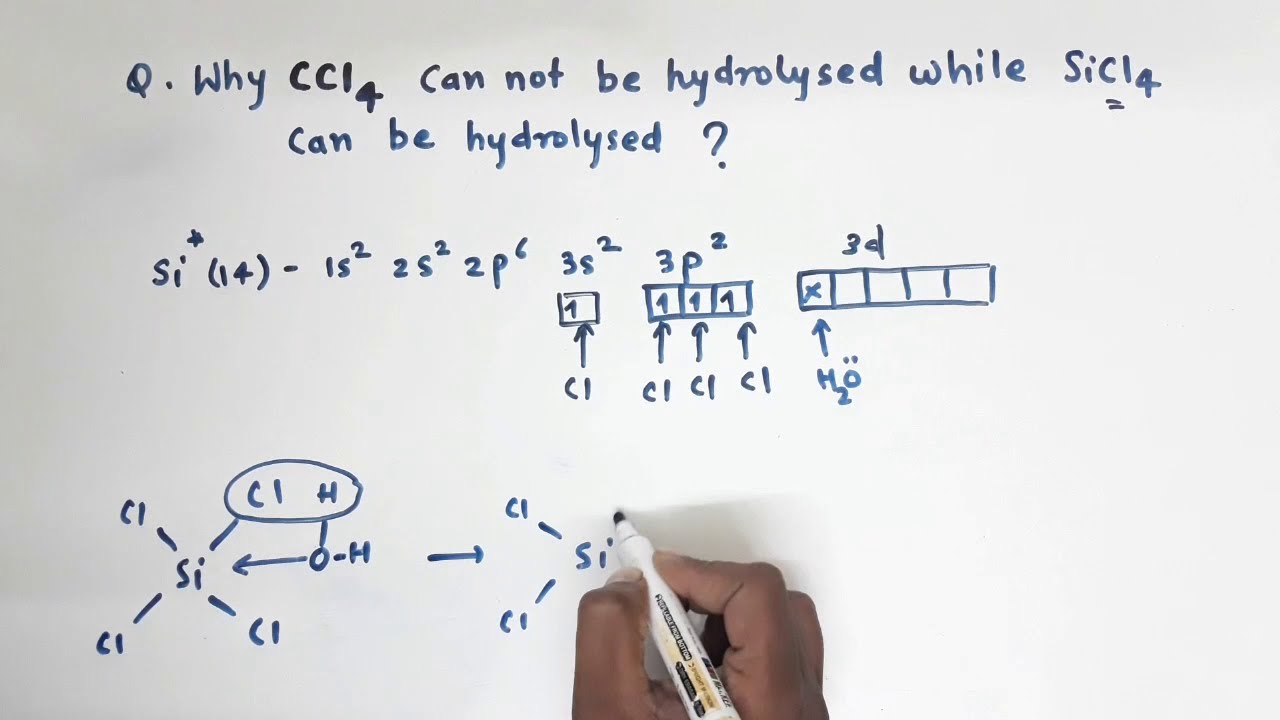 Q. Why CCl4 can not be hydrolysed while SiCl4
can be hydrolysed ?
3d
Si* (14) - 1s² 2s² 2p⁶ 3s² 3p²
1 1 1 1 x
Cl Cl Cl Cl H2Ö
Cl H
Cl Cl
O-H
Si Si
Cl Cl Cl